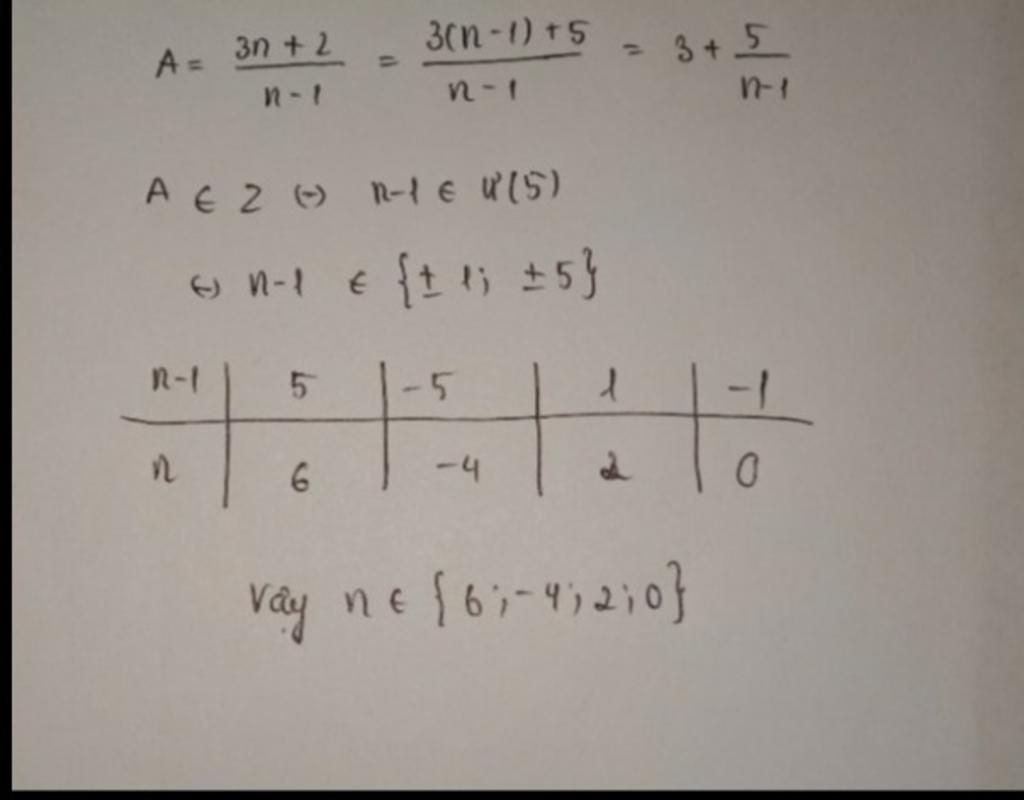 A = \frac{3n + 2}{n - 1} = \frac{3(n - 1) + 5}{n - 1} = 3 + \frac{5}{n - 1}
A ∈ Z (-) n-1 ∈ Ư(5)
(-) n-1 ∈ {± 1; ± 5}
n-1 | 5 | -5 | 1 | -1
n | 6 | -4 | 2 | 0
Vậy n ∈ {6; -4; 2; 0}